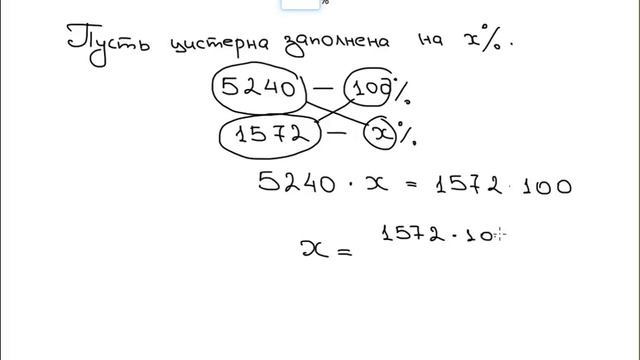 %
Пусть цистерна заполнена на x%.
5240 — 100%
1572 — x%
5240 · x = 1572 · 100
1572 · 10
x =